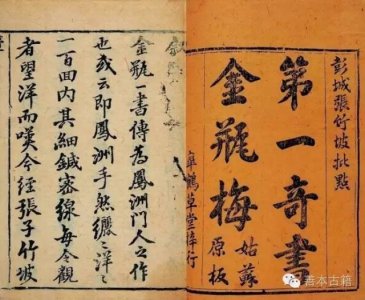 彭城張竹坡批點
第一奇書
金瓶梅
姑蘇
原板
皐鶴草堂梓行
金瓶一書傳為鳳洲門人之作
也或云即鳳洲手然纚纚洋洋
一百回内其細鍼密線每令觀
者望洋而嘆今經張子竹坡
善本古籍